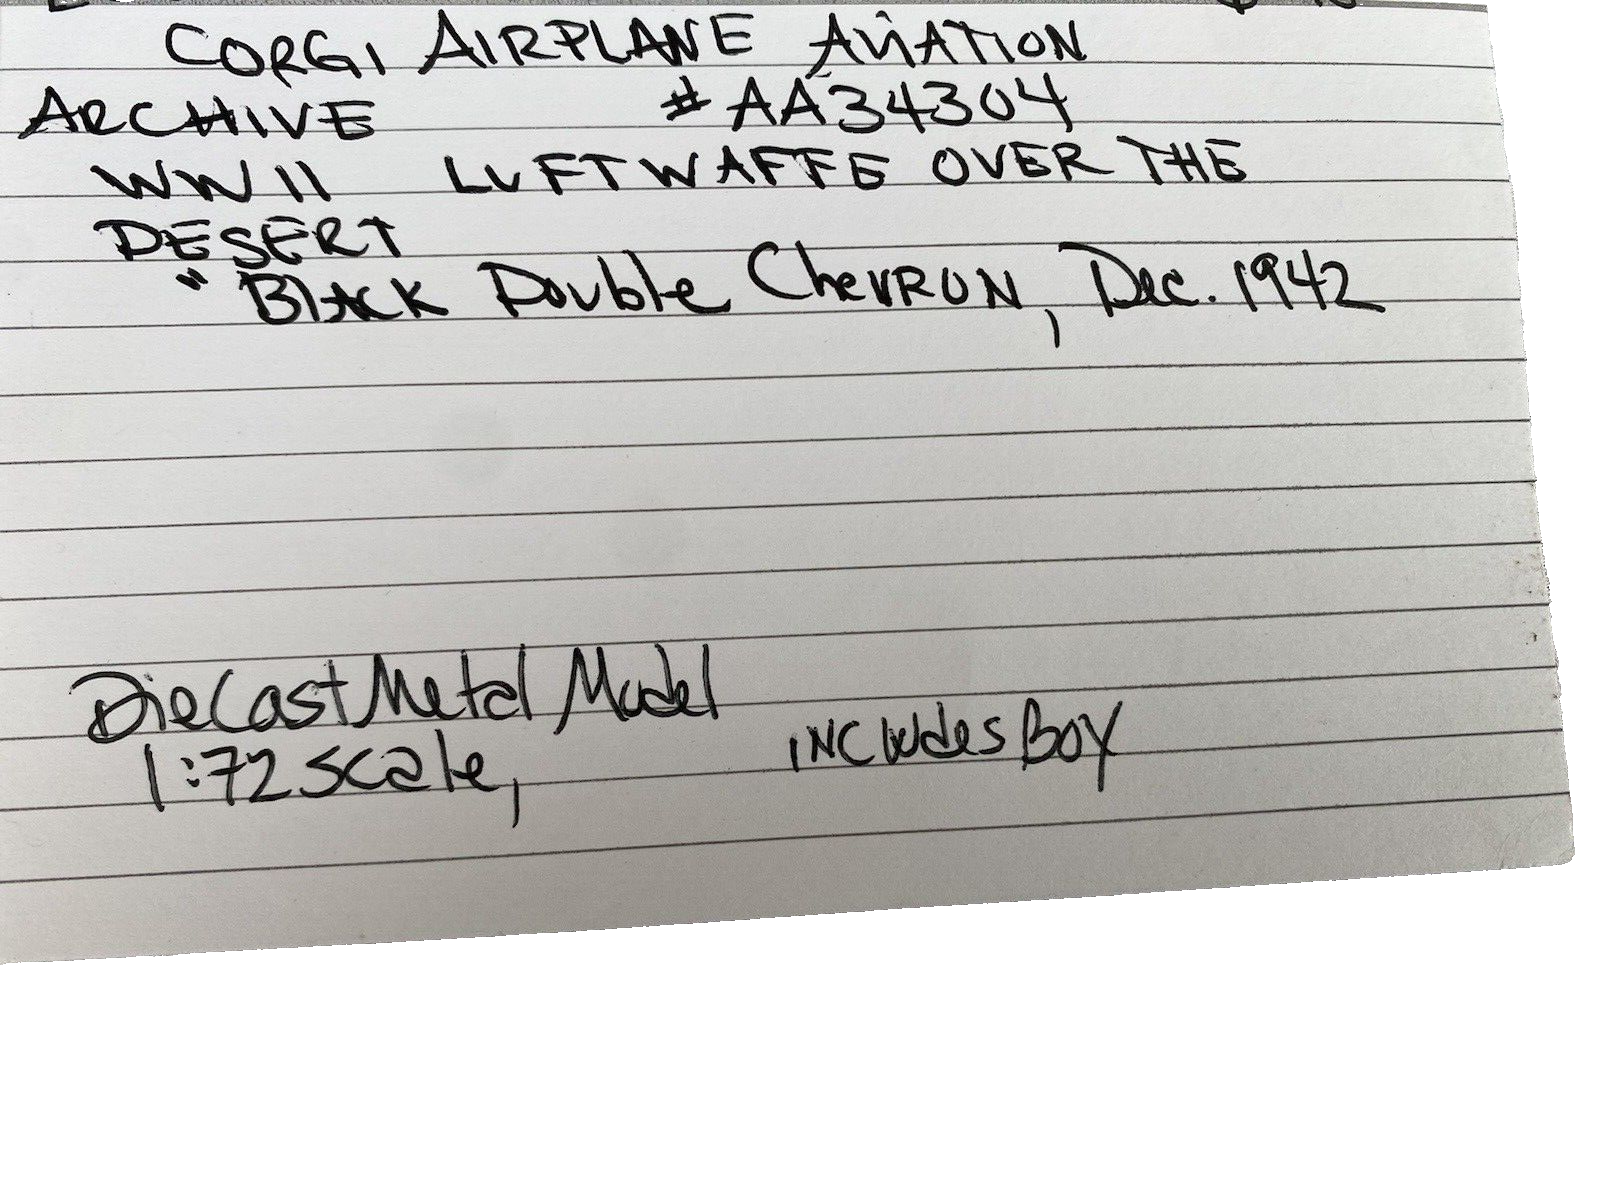 CORGI AIRPLANE AVIATION
ARCHIVE # AA34304
WWII LUFTWAFFE OVER THE
DESERT
" Black Double CHEVRON, Dec. 1942
DieCast Metal Model
1:72 scale, INCludes BOY